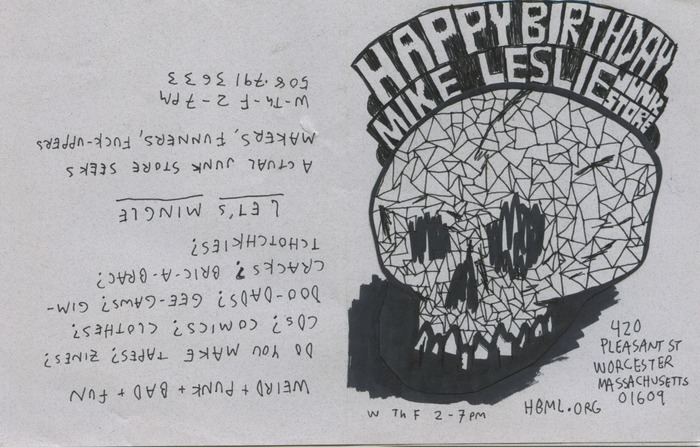 HAPPY BIRTHDAY
MIKE LESLIE
JUNK
STORE
W Th F 2-7PM
HBML.ORG
420
PLEASANT ST
WORCESTER
MASSACHUSETTS
01609
WEIRD + PUNK + BAD + FUN
DO YOU MAKE TAPES? ZINES?
CDs? COMICS? CLOTHES?
DOO-DADS? GEE-GAWS? GIM-
CRACKS? BRIC-A-BRAC?
TCHOTCHKIES?
LET'S MINGLE
ACTUAL JUNK STORE SEEKS
MAKERS, FUNNERS, FUCK-UPPERS
W-Th-F 2-7PM
508.791 3633